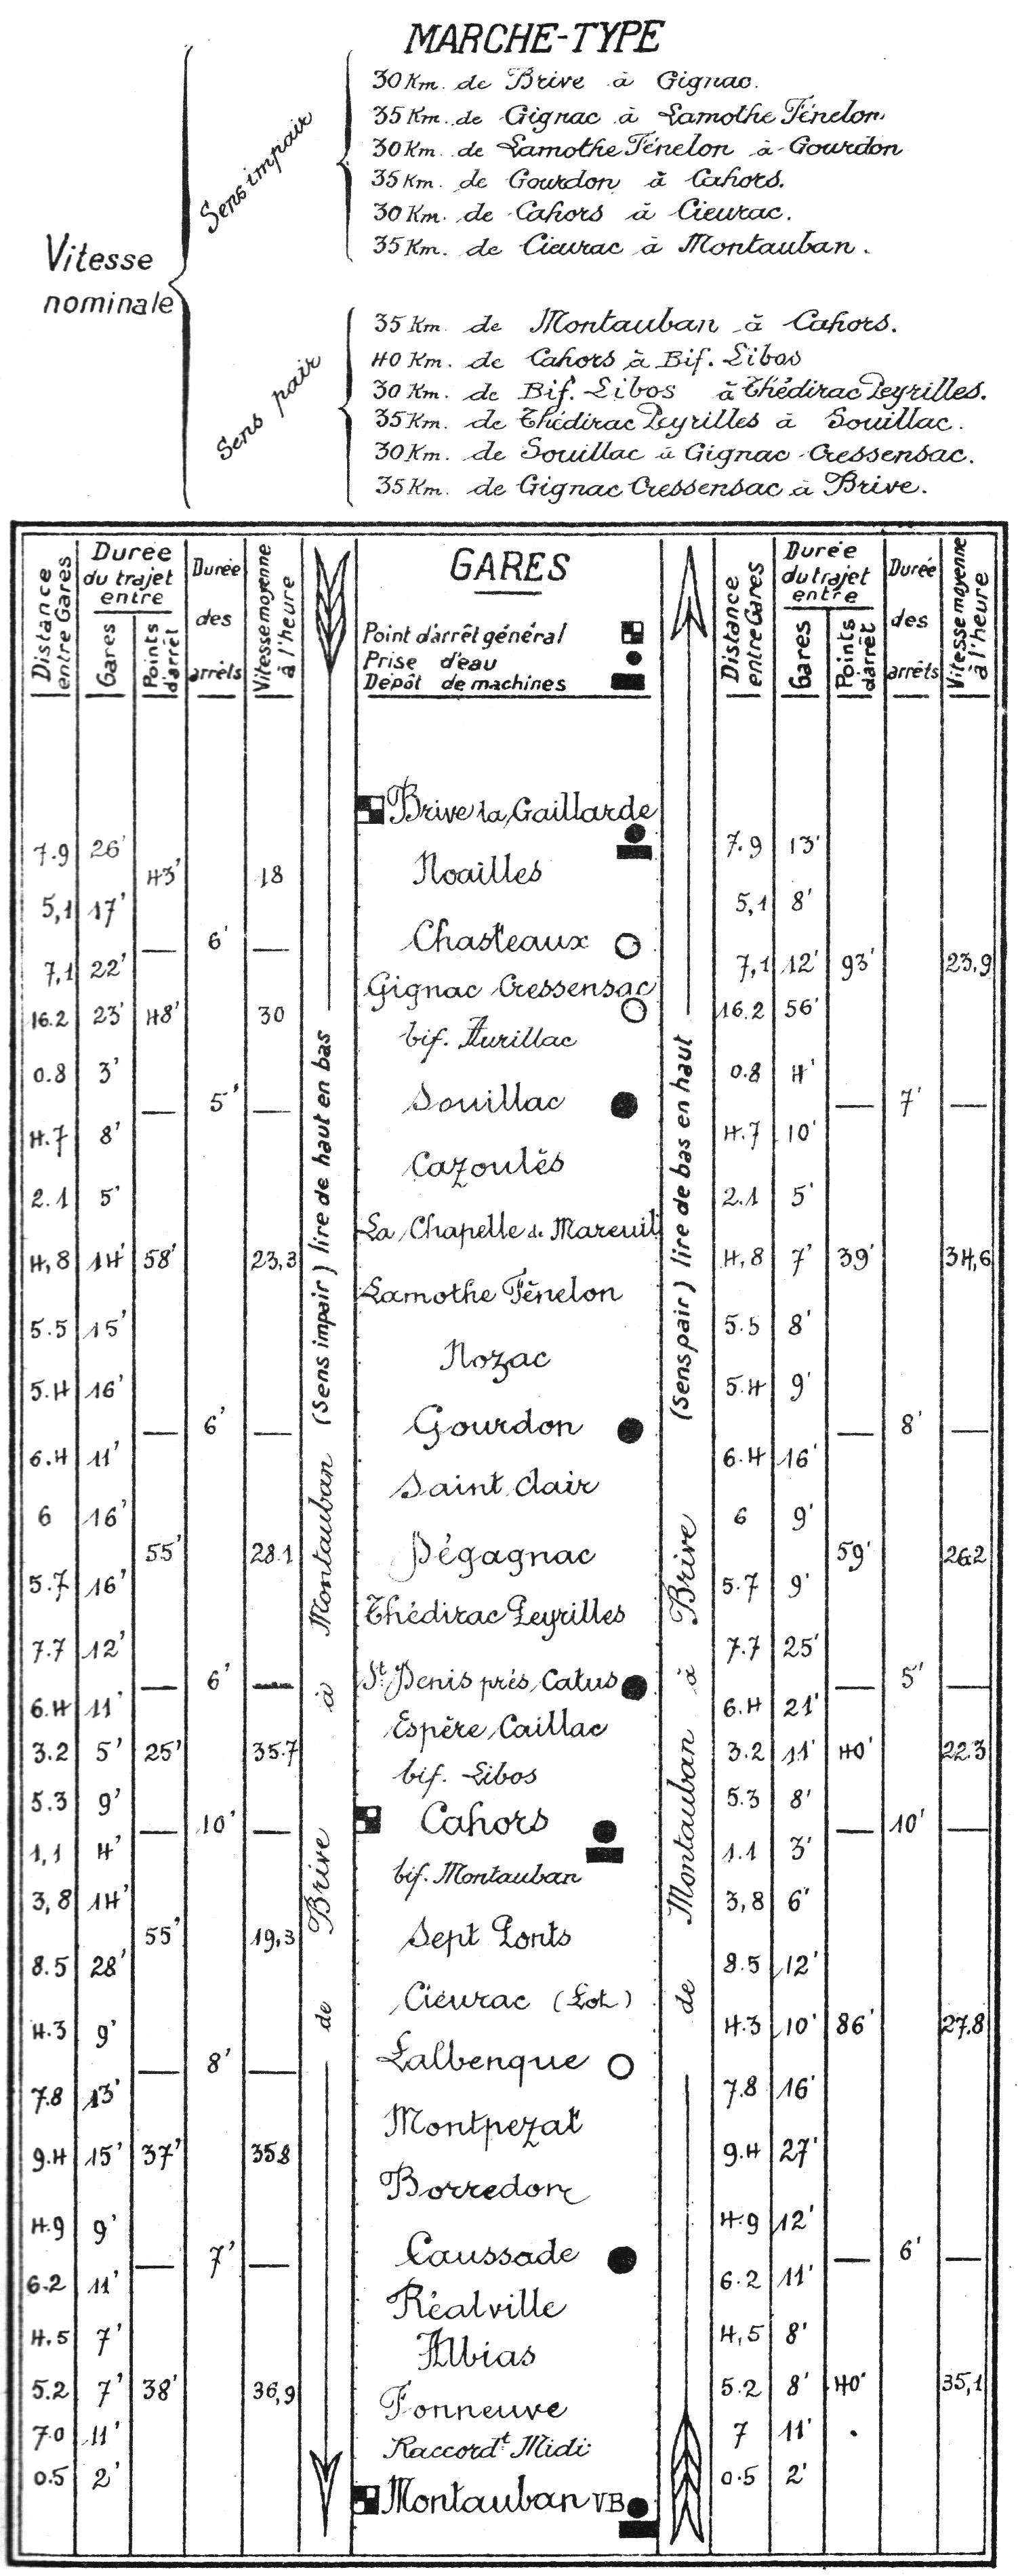 MARCHE-TYPE
Vitesse
nominale
Sens impair
30 Km. de Brive à Gignac.
35 Km. de Gignac à Lamothe Fénelon
30 Km. de Lamothe Fénelon à Gourdon
35 Km. de Gourdon à Cahors.
30 Km. de Cahors à Cieurac.
35 Km. de Cieurac à Montauban.
Sens pair
35 Km. de Montauban à Cahors.
40 Km. de Cahors à Bif. Libos
30 Km. de Bif. Libos à Thédirac Peyrilles.
35 Km. de Thédirac Peyrilles à Souillac.
30 Km. de Souillac à Gignac-Cressensac.
35 Km. de Gignac Cressensac à Brive.
Distance entre Gares
Durée du trajet entre
Gares
Points d'arrêt
Durée des arrêts
Vitesse moyenne à l'heure
GARES
Point d'arrêt général
Prise d'eau
Dépôt de machines
Distance entre Gares
Durée du trajet entre
Gares
Points d'arrêt
Durée des arrêts
Vitesse moyenne à l'heure
de Brive à Montauban (Sens impair) lire de haut en bas
de Montauban à Brive (Sens pair) lire de bas en haut
Brive la Gaillarde
7.9 26' 7.9 13'
Noailles
43' 18
5,1 17' 5,1 8'
Chasteaux
6'
7,1 22' 7,1 12' 93' 23,9
Gignac Cressensac
16.2 23' 48' 30 16.2 56'
bif. Aurillac
0.8 3' 0.8 4'
Souillac
5' 7'
4.7 8' 4.7 10'
Cazoulès
2.1 5' 2.1 5'
La Chapelle de Mareuil
4,8 14' 58' 23,3 4,8 7' 39' 34,6
Lamothe Fénelon
5.5 15' 5.5 8'
Nozac
5.4 16' 5.4 9'
Gourdon
6' 8'
6.4 11' 6.4 16'
Saint Clair
6 16' 6 9'
Dégagnac
55' 28.1 59' 26.2
5.7 16' 5.7 9'
Thédirac Peyrilles
7.7 12' 7.7 25'
St Denis près Catus
6' 5'
6.4 11' 6.4 21'
Espère Caillac
3.2 5' 25' 35.7 3.2 11' 40' 22.3
bif. Libos
5.3 9' 5.3 8'
Cahors
10' 10'
1,1 4' 1.1 3'
bif. Montauban
3,8 14' 3,8 6'
Sept Ponts
55' 19,3
8.5 28' 8.5 12'
Cieurac (Lot)
4.3 9' 4.3 10' 86' 27.8
Lalbenque
8'
7.8 13' 7.8 16'
Montpezat
9.4 15' 37' 35.8 9.4 27'
Borredon
4.9 9' 4.9 12'
Caussade
7' 6'
6.2 11' 6.2 11'
Réalville
4,5 7' 4,5 8'
Albias
5.2 7' 38' 36,9 5.2 8' 40' 35,1
Fonneuve
7.0 11' 7 11'
Raccordt Midi
0.5 2' 0.5 2'
Montauban VB